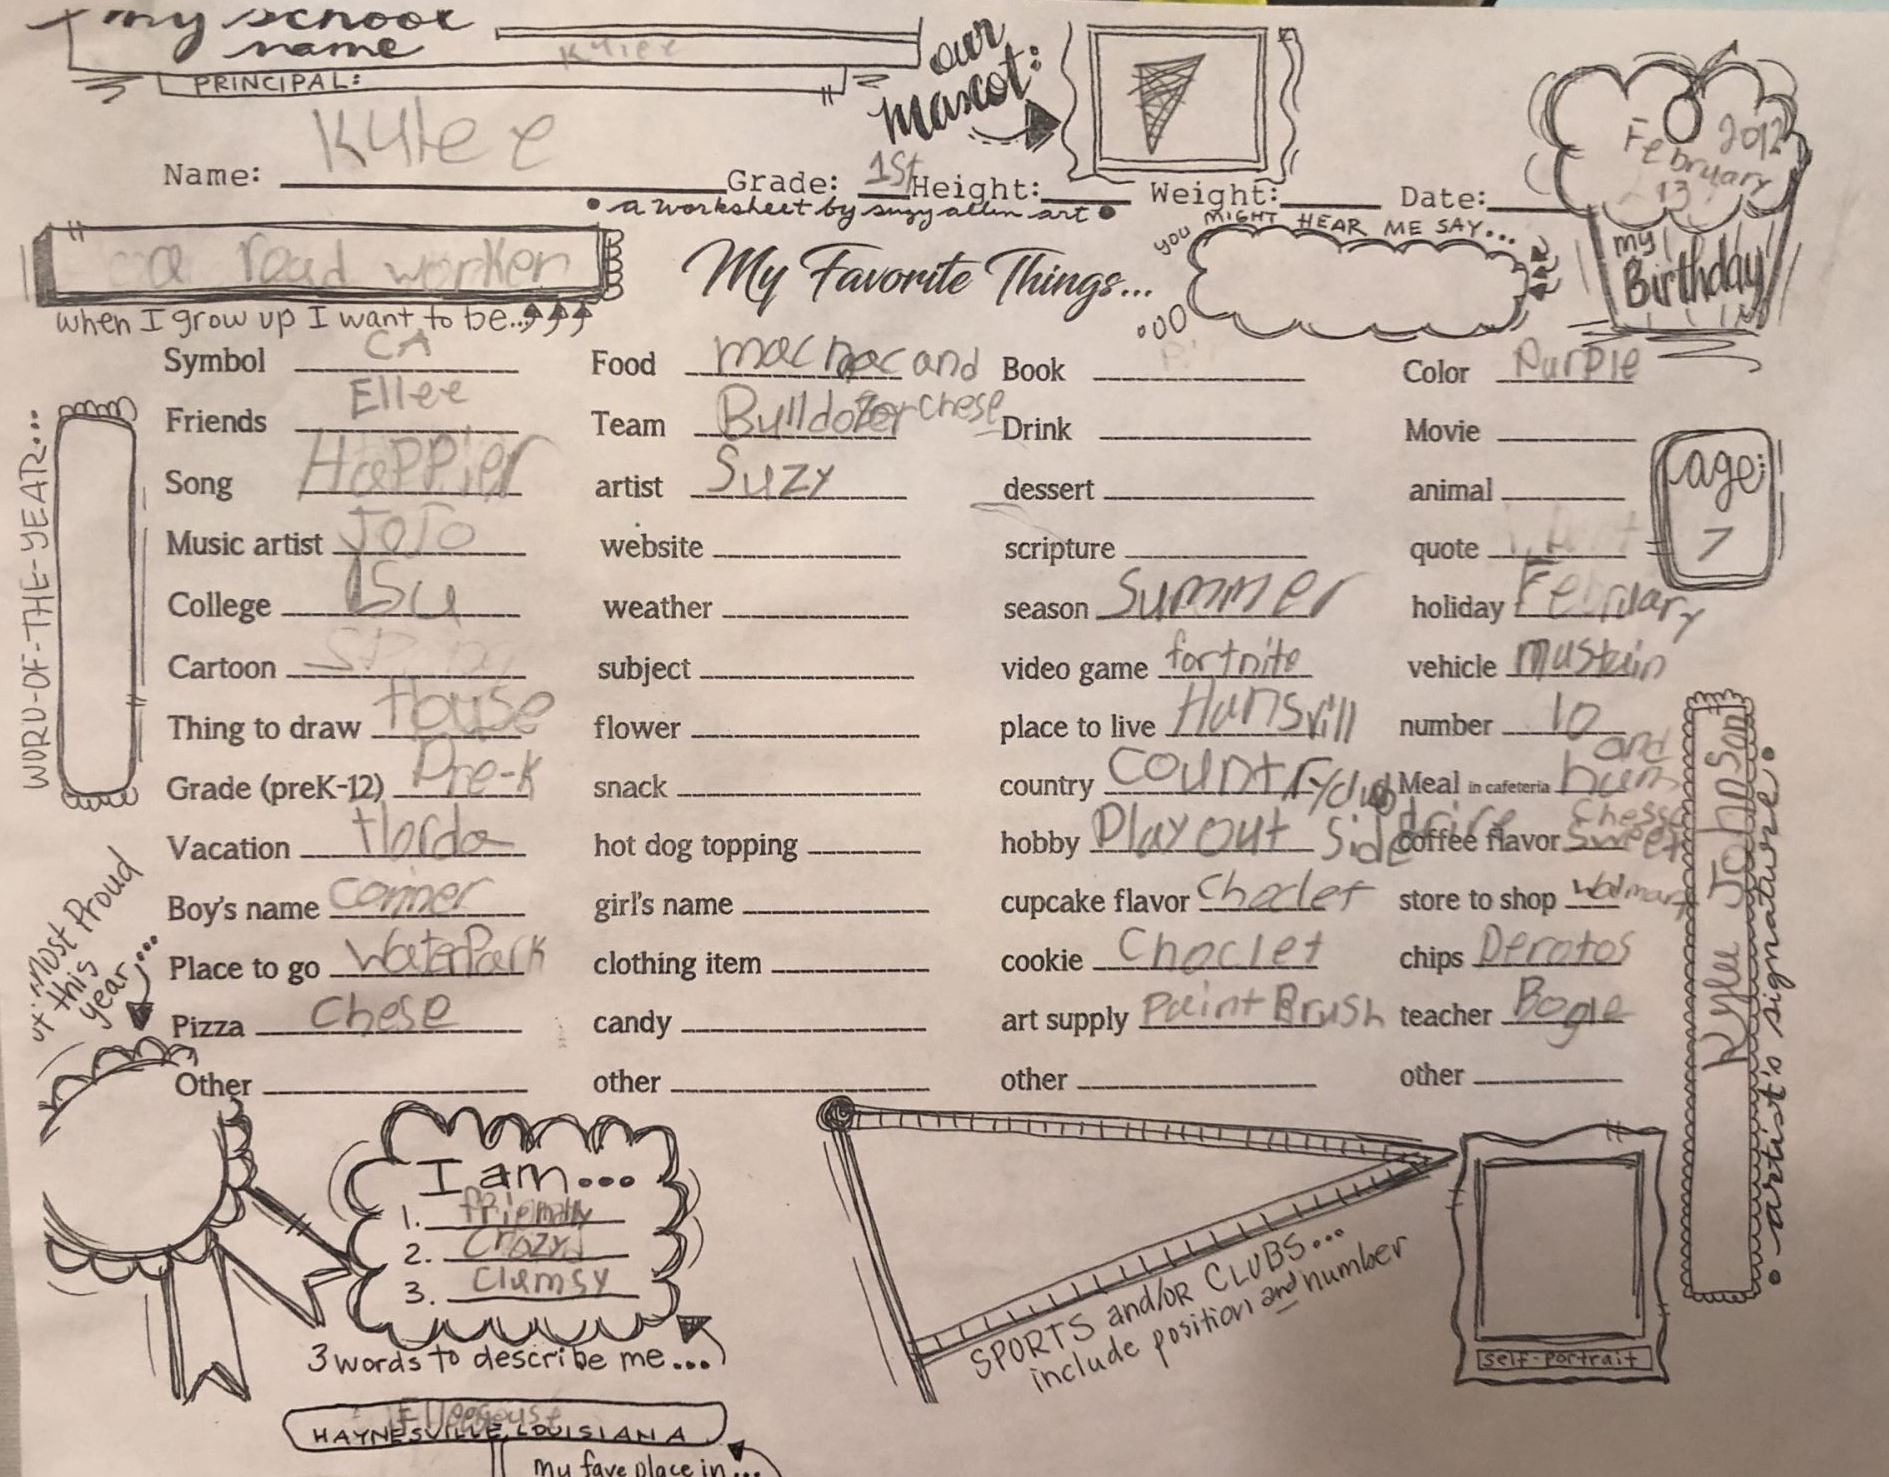 my school
name
Kyliee
PRINCIPAL:
our
mascot:
Name: Kyleee Grade: 1st Height: Weight: Date:
• a worksheet by suzy allen art •
February 2012
13
my
Birthday
a road worker
when I grow up I want to be...
My Favorite Things...
you MIGHT HEAR ME SAY...
Symbol CA Food mac and Book Color Purple
Friends Ellee Team Bulldozer chese Drink Movie
Song Happier artist Suzy dessert animal
Music artist JoJo website scripture quote
College LSU weather season Summer holiday February
Cartoon subject video game fortnite vehicle mustain
Thing to draw House flower place to live Hansvill number 10
Grade (preK-12) Pre-K snack country Country club Meal in cafeteria ham and
Chesse
Vacation Florda hot dog topping hobby Play out side coffee flavor Sweet
Boy's name conner girl's name cupcake flavor Choclet store to shop Walmart
Place to go WaterPark clothing item cookie Choclet chips Derotos
Pizza Chese candy art supply paint Brush teacher Bogle
Other other other other
WORD-OF-THE-YEAR...
age:
7
Kylee Johnson
• artist's signature •
Most Proud
this
year...
I am...
1.
2. Crazy
3. Clumsy
3 words to describe me...
SPORTS and/or CLUBS...
include position and number
self-portrait
HAYNESVILLE, LOUISIANA
my fave place in...